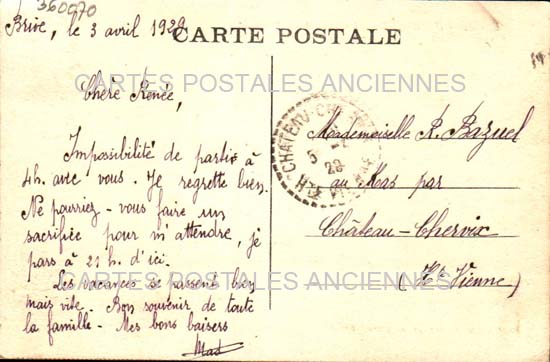 360070
Brive, le 3 avril 1929
CARTE POSTALE
CARTES POSTALES ANCIENNES
Chère Renée,
Impossibilité de partir à
4h. avec vous. Je regrette bien.
Ne pourriez-vous faire un
sacrifice pour m'attendre, je
pars à 21 h. d'ici.
Les vacances se passent bien
mais vite. Bon souvenir de toute
la famille - Mes bons baisers
CHATEAU-CHERVIX
5
HTE VIENNE
Mademoiselle R. Bazuel
au Mas par
Château-Chervix
(Hte Vienne)
CARTES POSTALES ANCIENNES